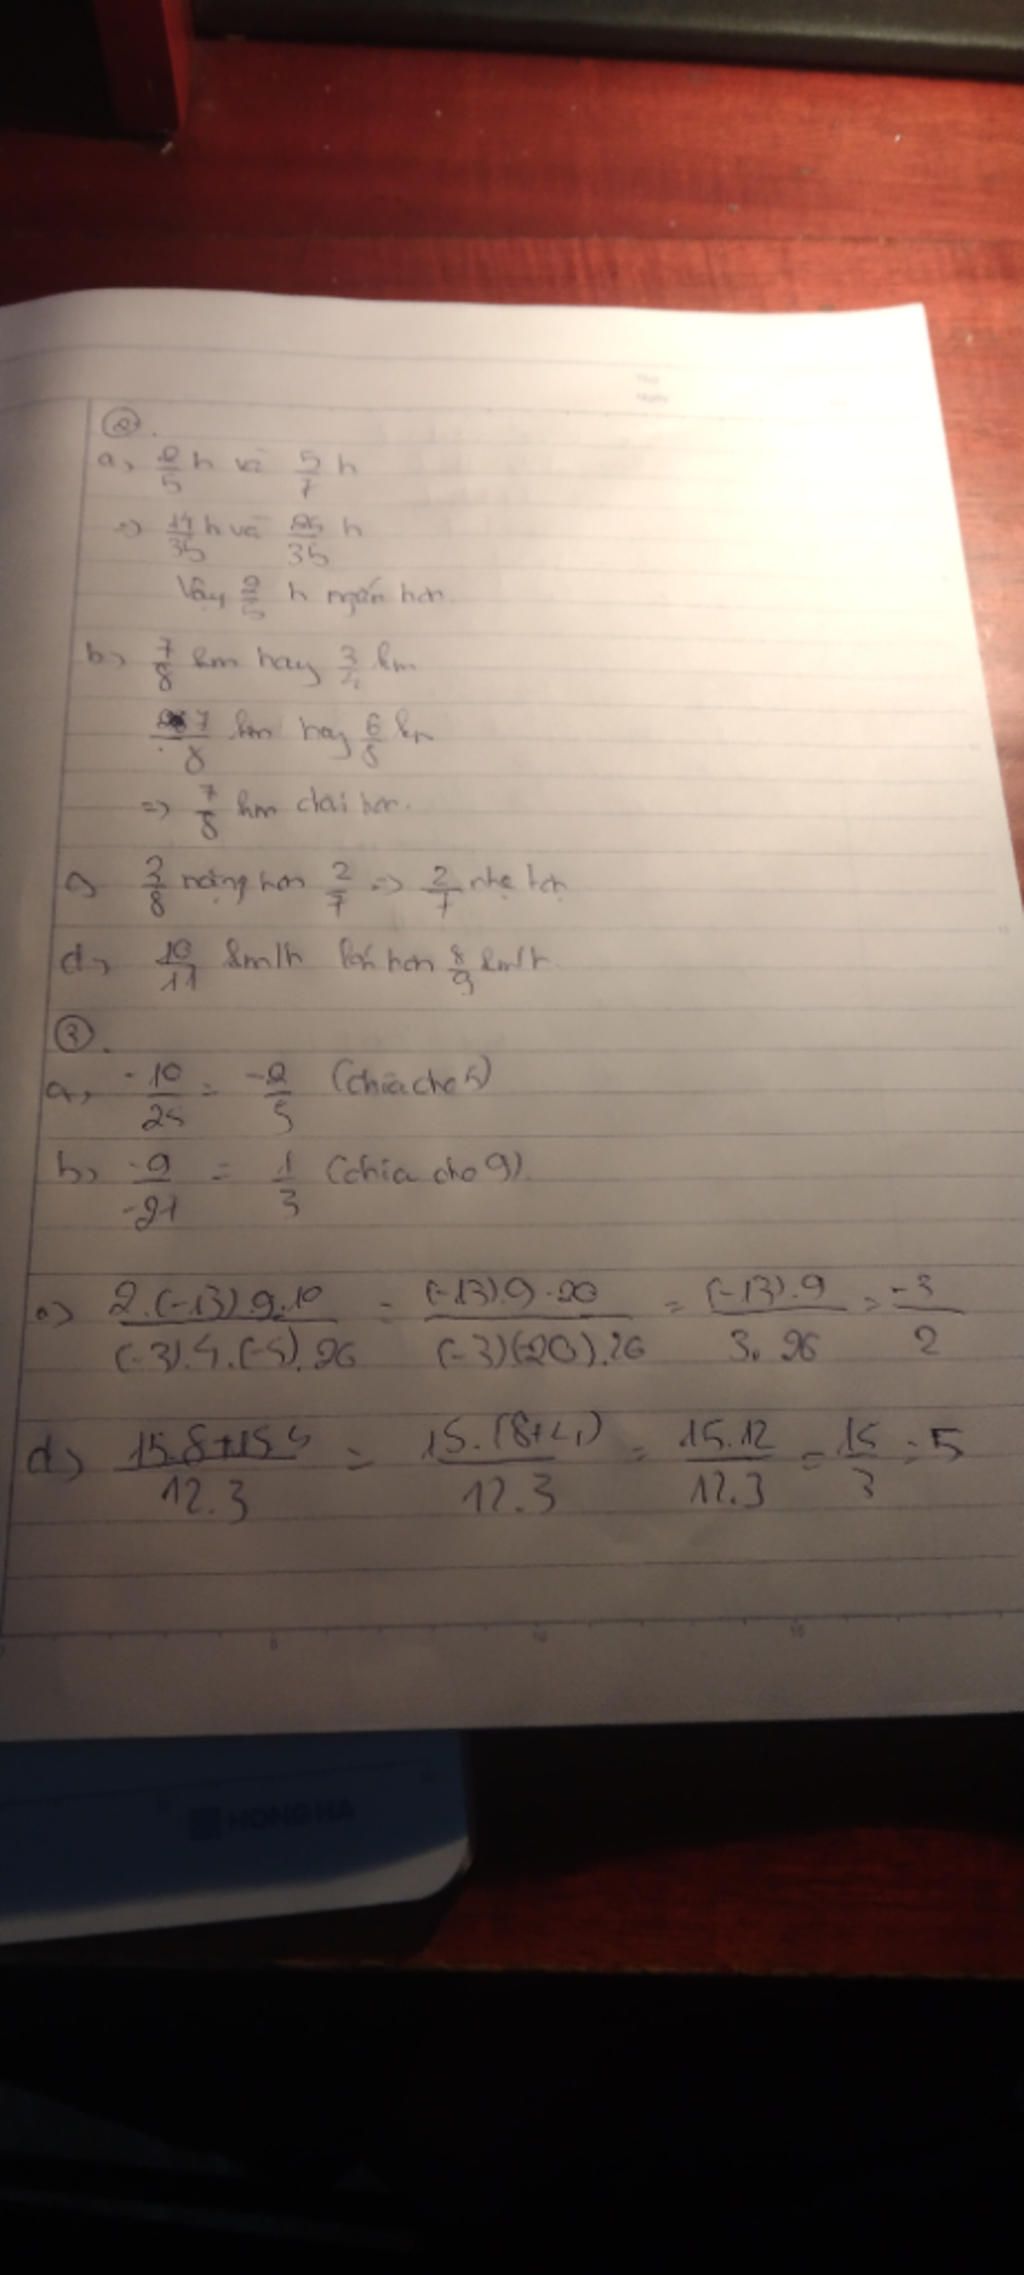 ②.
a, 2/5 h và 5/7 h
=> 14/35 h và 25/35 h
Vậy 2/5 h ngắn hơn.
b, 7/8 km hay 3/4 km
7/8 km hay 6/8 km
=> 7/8 km dài hơn.
c, 3/8 nặng hơn 2/7 => 2/7 nhẹ hơn
d, 10/11 km/h lớn hơn 8/9 km/h.
③.
a, -10/25 = -2/5 (chia cho 5)
b, -9/-21 = 1/3 (chia cho 9).
c) 2.(-13).9.10/(-3).4.(-5).26 = (-13).9.20/(-3)(-20).26 = (-13).9/3.26 = -3/2
d) 15.8+15.4/12.3 = 15.(8+4)/12.3 = 15.12/12.3 = 15/3 = 5
HONG HA